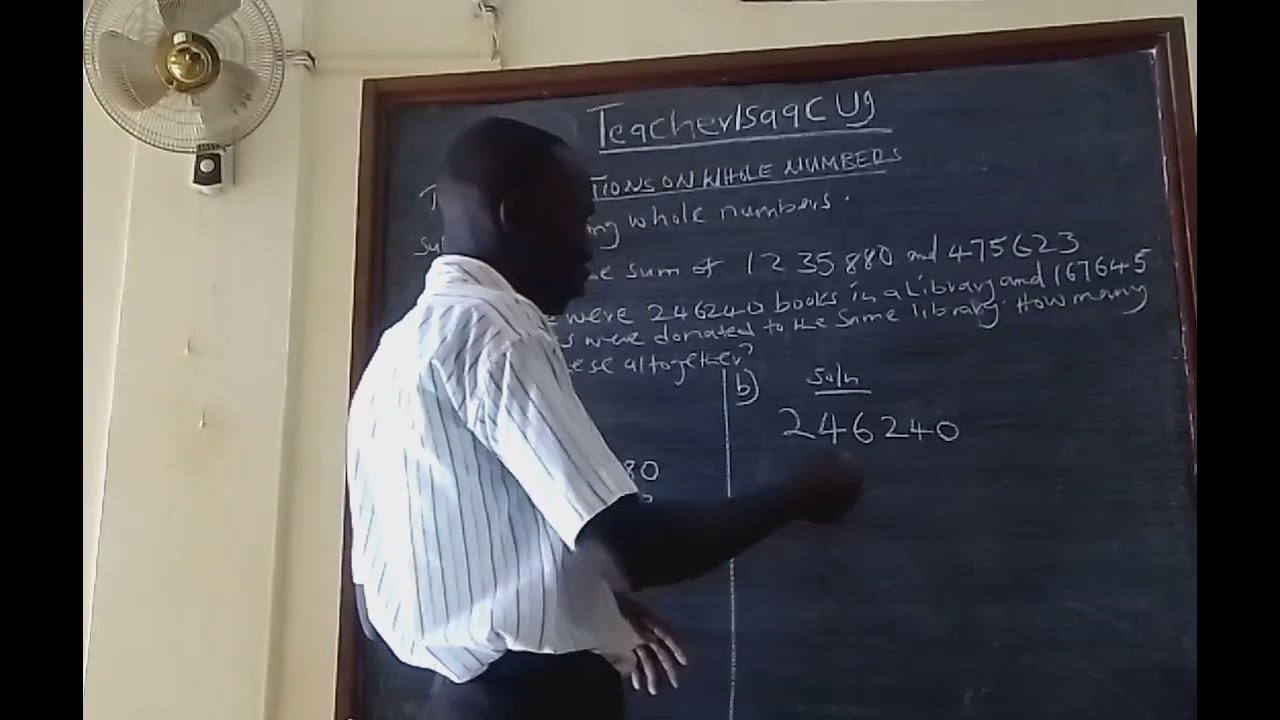 Teacher Isaac Ug
TIONS ON WHOLE NUMBERS
ng whole numbers.
e sum of 1235880 and 475623
e were 246240 books in a library and 167645
s were donated to the same library. How many
ese altogether?
b) Soln
246240
80